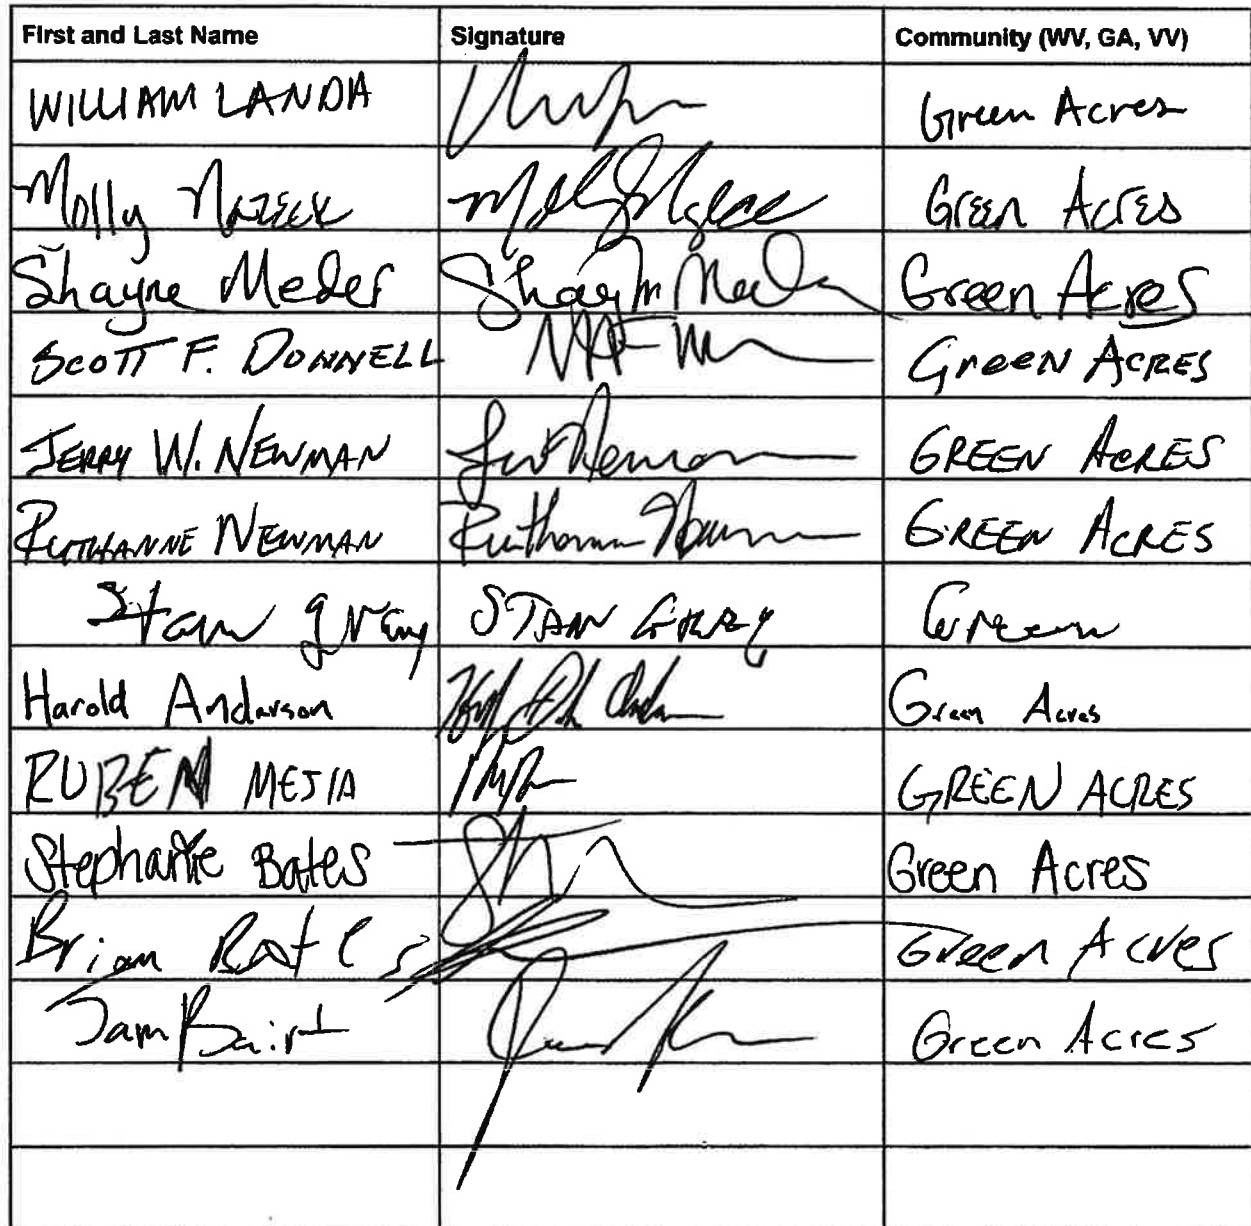 First and Last Name Signature Community (WV, GA, VV)
WILLIAM LANDA Green Acres
Molly Green Acres
Shayne Meder Shayne Meder Green Acres
SCOTT F. DONNELL GREEN ACRES
JERRY W. NEWMAN Newman GREEN ACRES
RUTHANNE NEWMAN Ruthanne Newman GREEN ACRES
Stan Grey STAN GREY Green
Harold Anderson Green Acres
RUBEN MEJIA GREEN ACRES
Stephanie Bates Green Acres
Brian Green Acres
Green Acres